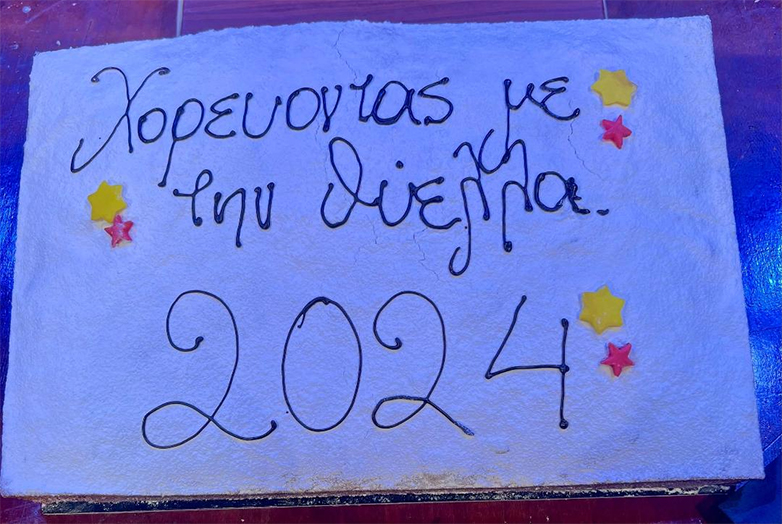 Χορευοντας με
την θύελλα.
2024